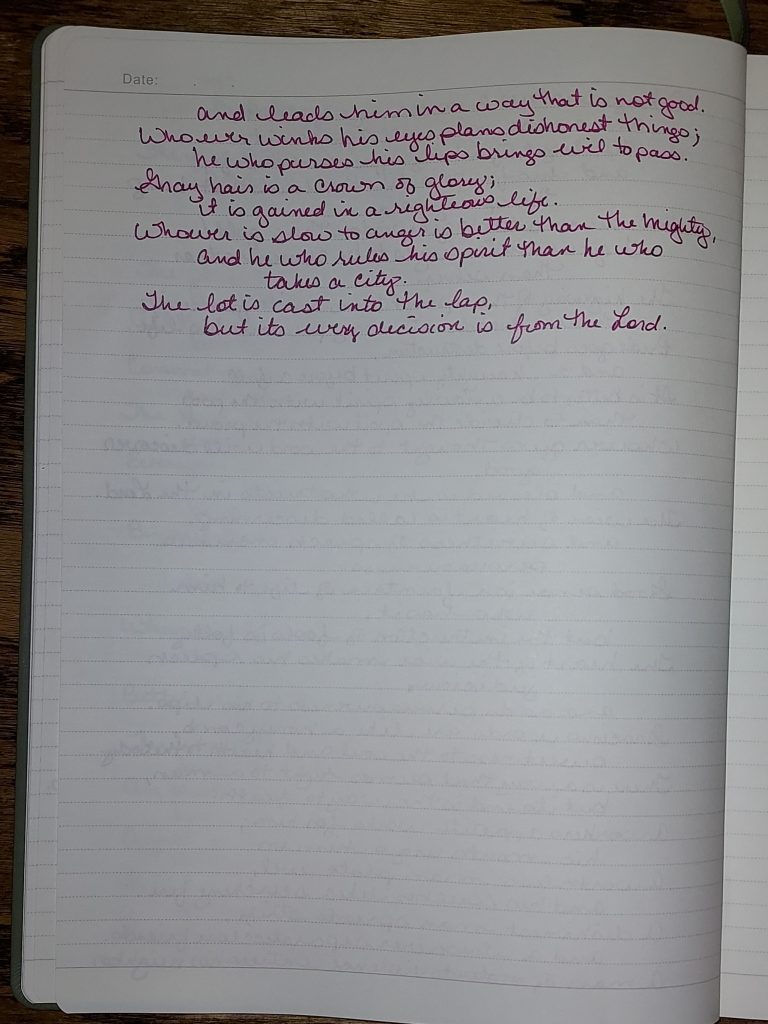 Date:
and leads him in a way that is not good.
Whoever winks his eyes plans dishonest things;
he who purses his lips brings evil to pass.
Gray hair is a crown of glory;
it is gained in a righteous life.
Whoever is slow to anger is better than the mighty,
and he who rules his spirit than he who
takes a city.
The lot is cast into the lap,
but its every decision is from the Lord.